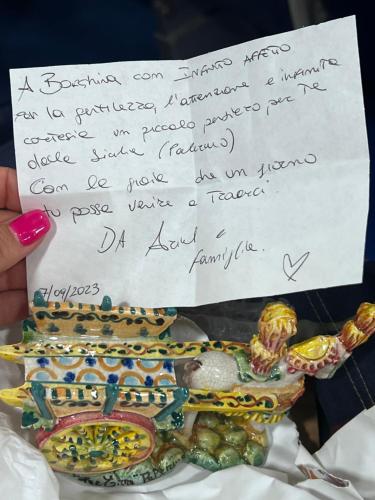 A Borghina con INFINITO AFFETTO
per la gentilezza, l'attenzione e infinita
cortesia un piccolo pensiero per Te
dalla Sicilia (Palermo)
Con la gioia che un giorno
tu possa venire a Trovarci.
DA Ariel e
famiglia.
7/09/2023